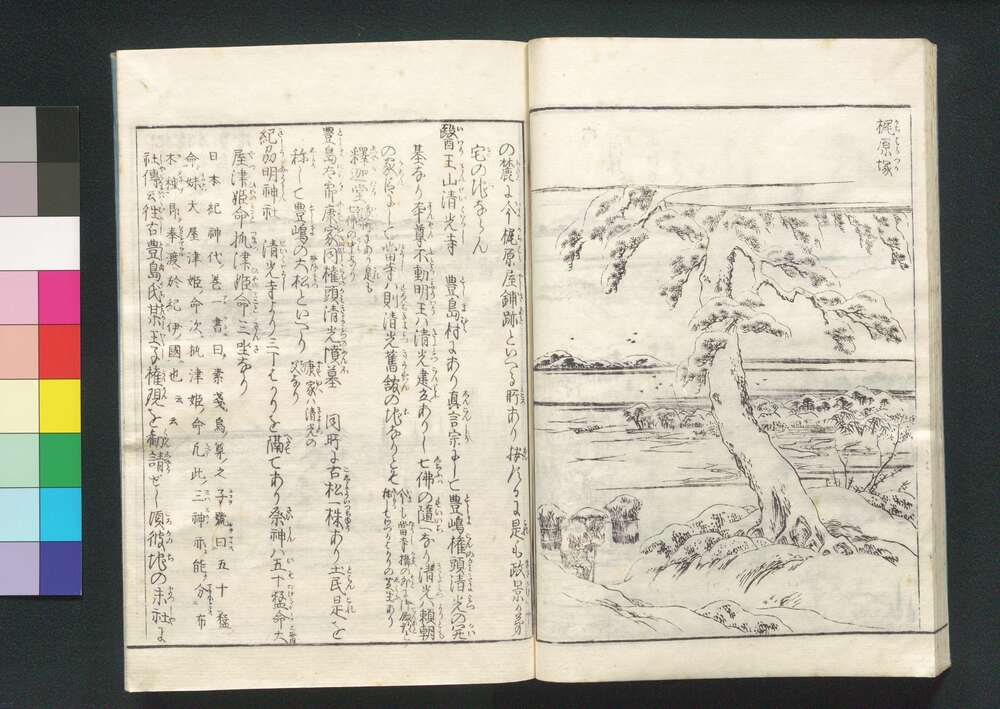 梶原塚
の麓に今梶原屋鋪跡といへる所あり按ずるに是も政景
宅の地ならん
醫王山清光寺 豊島村にあり真言宗にして豊嶋権頭清光の
基なり本尊不動明王ハ清光建立ありし七佛の随一なり清光ハ頼朝
の家臣にして當寺ハ則清光舊舘の地なりとそ
釋迦堂
豊島太郎康家同権頭清光墳墓 同所に古松一株あり土民是を
称して豊嶋の六松といへり 康家ハ清光の父なり
紀州明神社 清光寺より三丁はかりを隔てあり祭神ハ五十猛命大
屋津姫命抓津姫命三坐なり
日本紀神代巻一書曰素戔烏尊之子號曰五十猛
命妹大屋津姫命次抓津姫命凡此三神亦能分布
木種即奉渡於紀伊國也云云
社傳云往古豊島氏某王子権現を勧請せし頃彼地の末社に